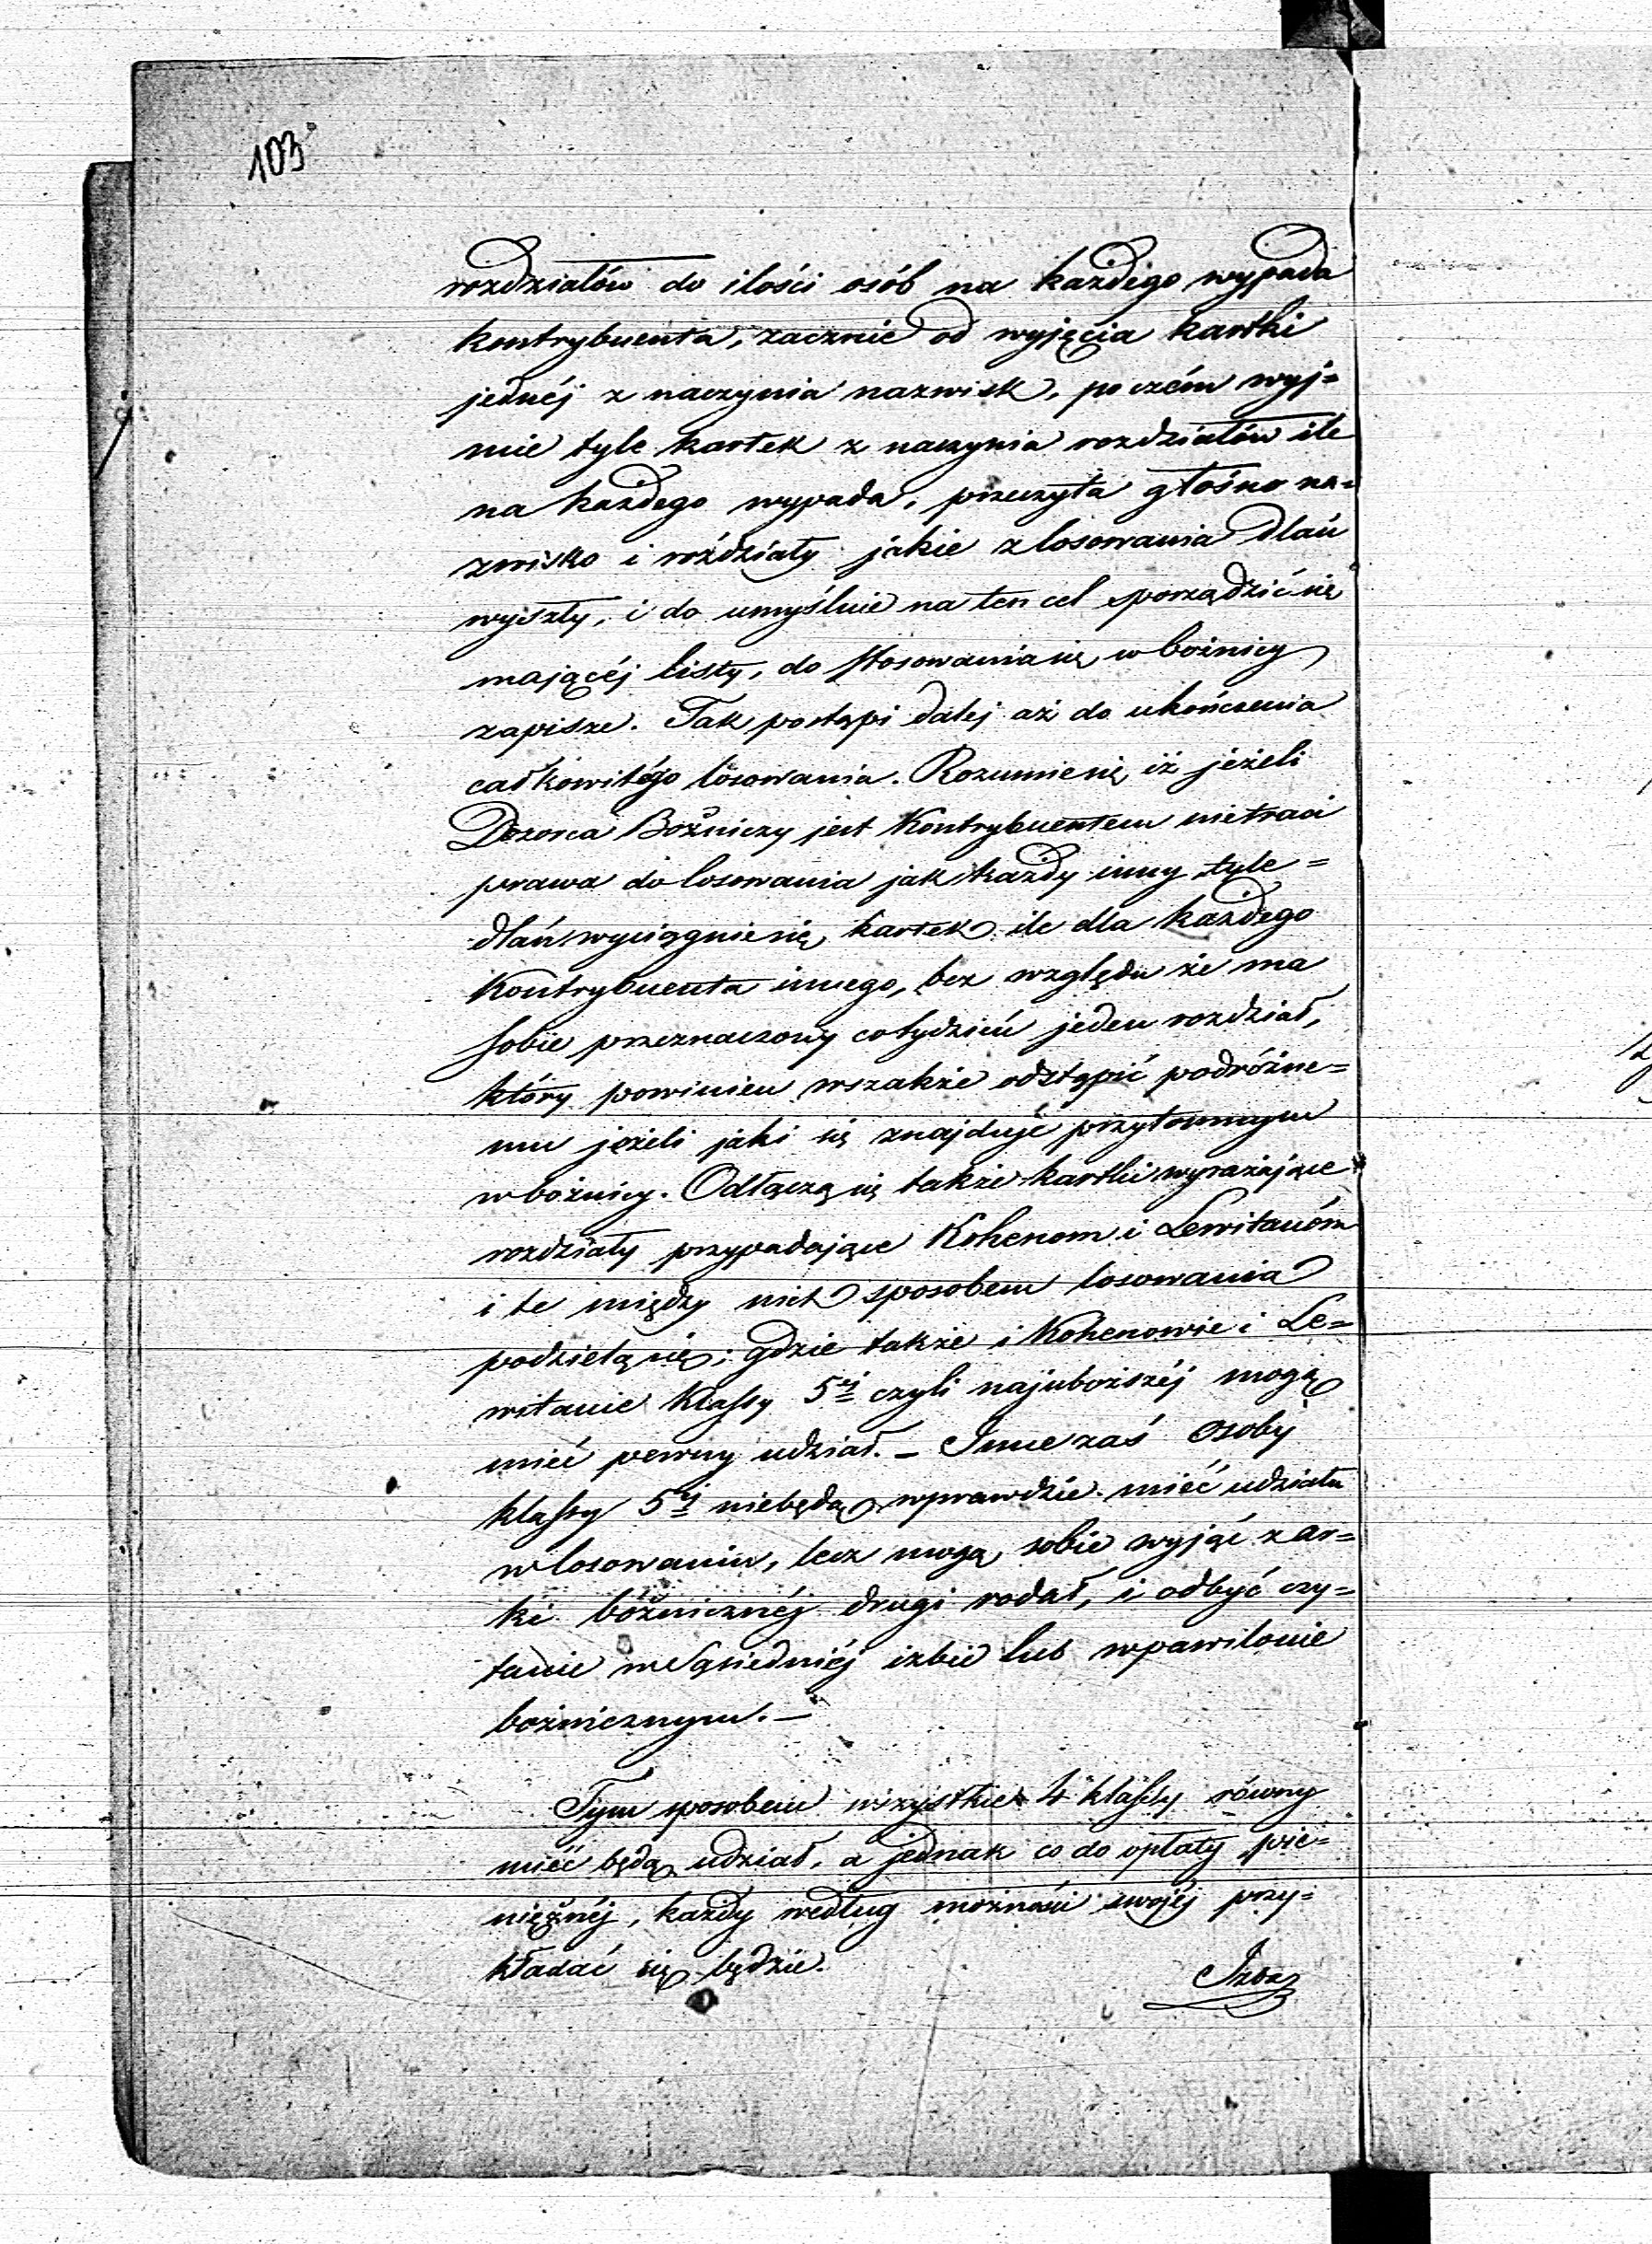 103
rozdziałów do ilości osób na każdego wypada
kontrybuenta, zacznie od wyjęcia kartki
jednéj z naczynia nazwisk, poczém wyj=
mie tyle kartek z naczynia rozdziałów ile
na każdego wypada, przeczyta głośno na=
zwisko i rozdziały jakie z losowania dlań
wyszły, i do umyślnie na ten cel sporządzić się
mającéj listy, do stosowania się w bożnicy
zapisze. Tak postąpi daléj aż do ukończenia
całkowitégo losowania. Rozumie się iż jeżeli
Dozorca Bożniczy jest Kontrybuentem nietraci
prawa do losowania jak każdy inny tyle=
dlań wyciągnie się kartek ile dla każdego
Kontrybuenta innego, bez względu że ma
sobie przeznaczony cotydzień jeden rozdział,
który powinien wszakże odstąpić podróżne=
mu jeżeli jaki się znajduje przytomnym
w bożnicy. Odłączą się także kartki wyrażające
rozdziały przypadające Kohenom i Lewitanóm
i te między nich sposobem losowania
podzielą się; gdzie także i Kohenowie i Le=
witanie Klassy 5éj czyli najuboższéj mogą
mieć pewny udział. – Inne zaś osoby
klassy 5éj niebędą wprawdzie mieć udziału
w losowaniu, lecz mogą sobie wyjąć z ar=
ki bóżnicznéj drugi rodał, i odbyć czy=
tanie w sąsiedniéj izbie lub w pawilonie
bożnicznym. –
Tym sposobem wszystkie 4 klassy równy
mieć będą udział, a jednak co do opłaty pie=
niężnéj, każdy według możności swojéj przy=
kładać się będzie.
Izba